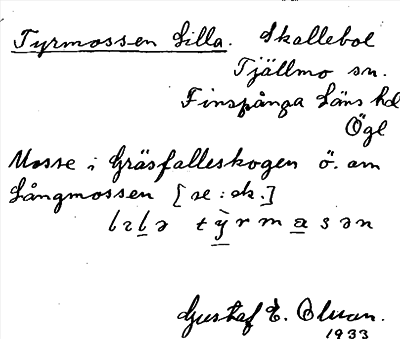 Tyrmossen Lilla. Skallebol
Tjällmo sn.
Finspånga Läns hd
Ögl
Mosse i Gräsfalleskogen ö. om
Långmossen [se: ek.]
Gustaf E. Olsson.
1933